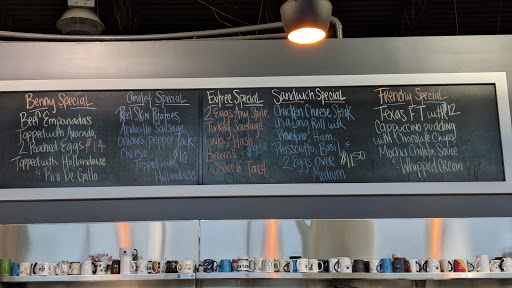 Benny Special
Beef Empanadas
Topped with Avocado,
2 Poached Eggs $14
Topped with Hollandaise
Pico De Gallo
Omelet Special
Red Skin Potatoes,
Andouille Sausage,
Onions, Pepper Jack
Cheese $10
Topped with
Hollandaise
Entree Special
2 Eggs Any Style
Turkey Sausage
Hash
Browns
Choice Toast
Sandwich Special
Chicken Cheese Steak
on a Long Roll with
Ham,
Prosciutto, Basil
2 Eggs Over $11.50
Medium
Frenchy Special
Texas FT with $12
Cappuccino pudding
with Chocolate Chips
Mocha Chilata Sauce
Whipped Cream